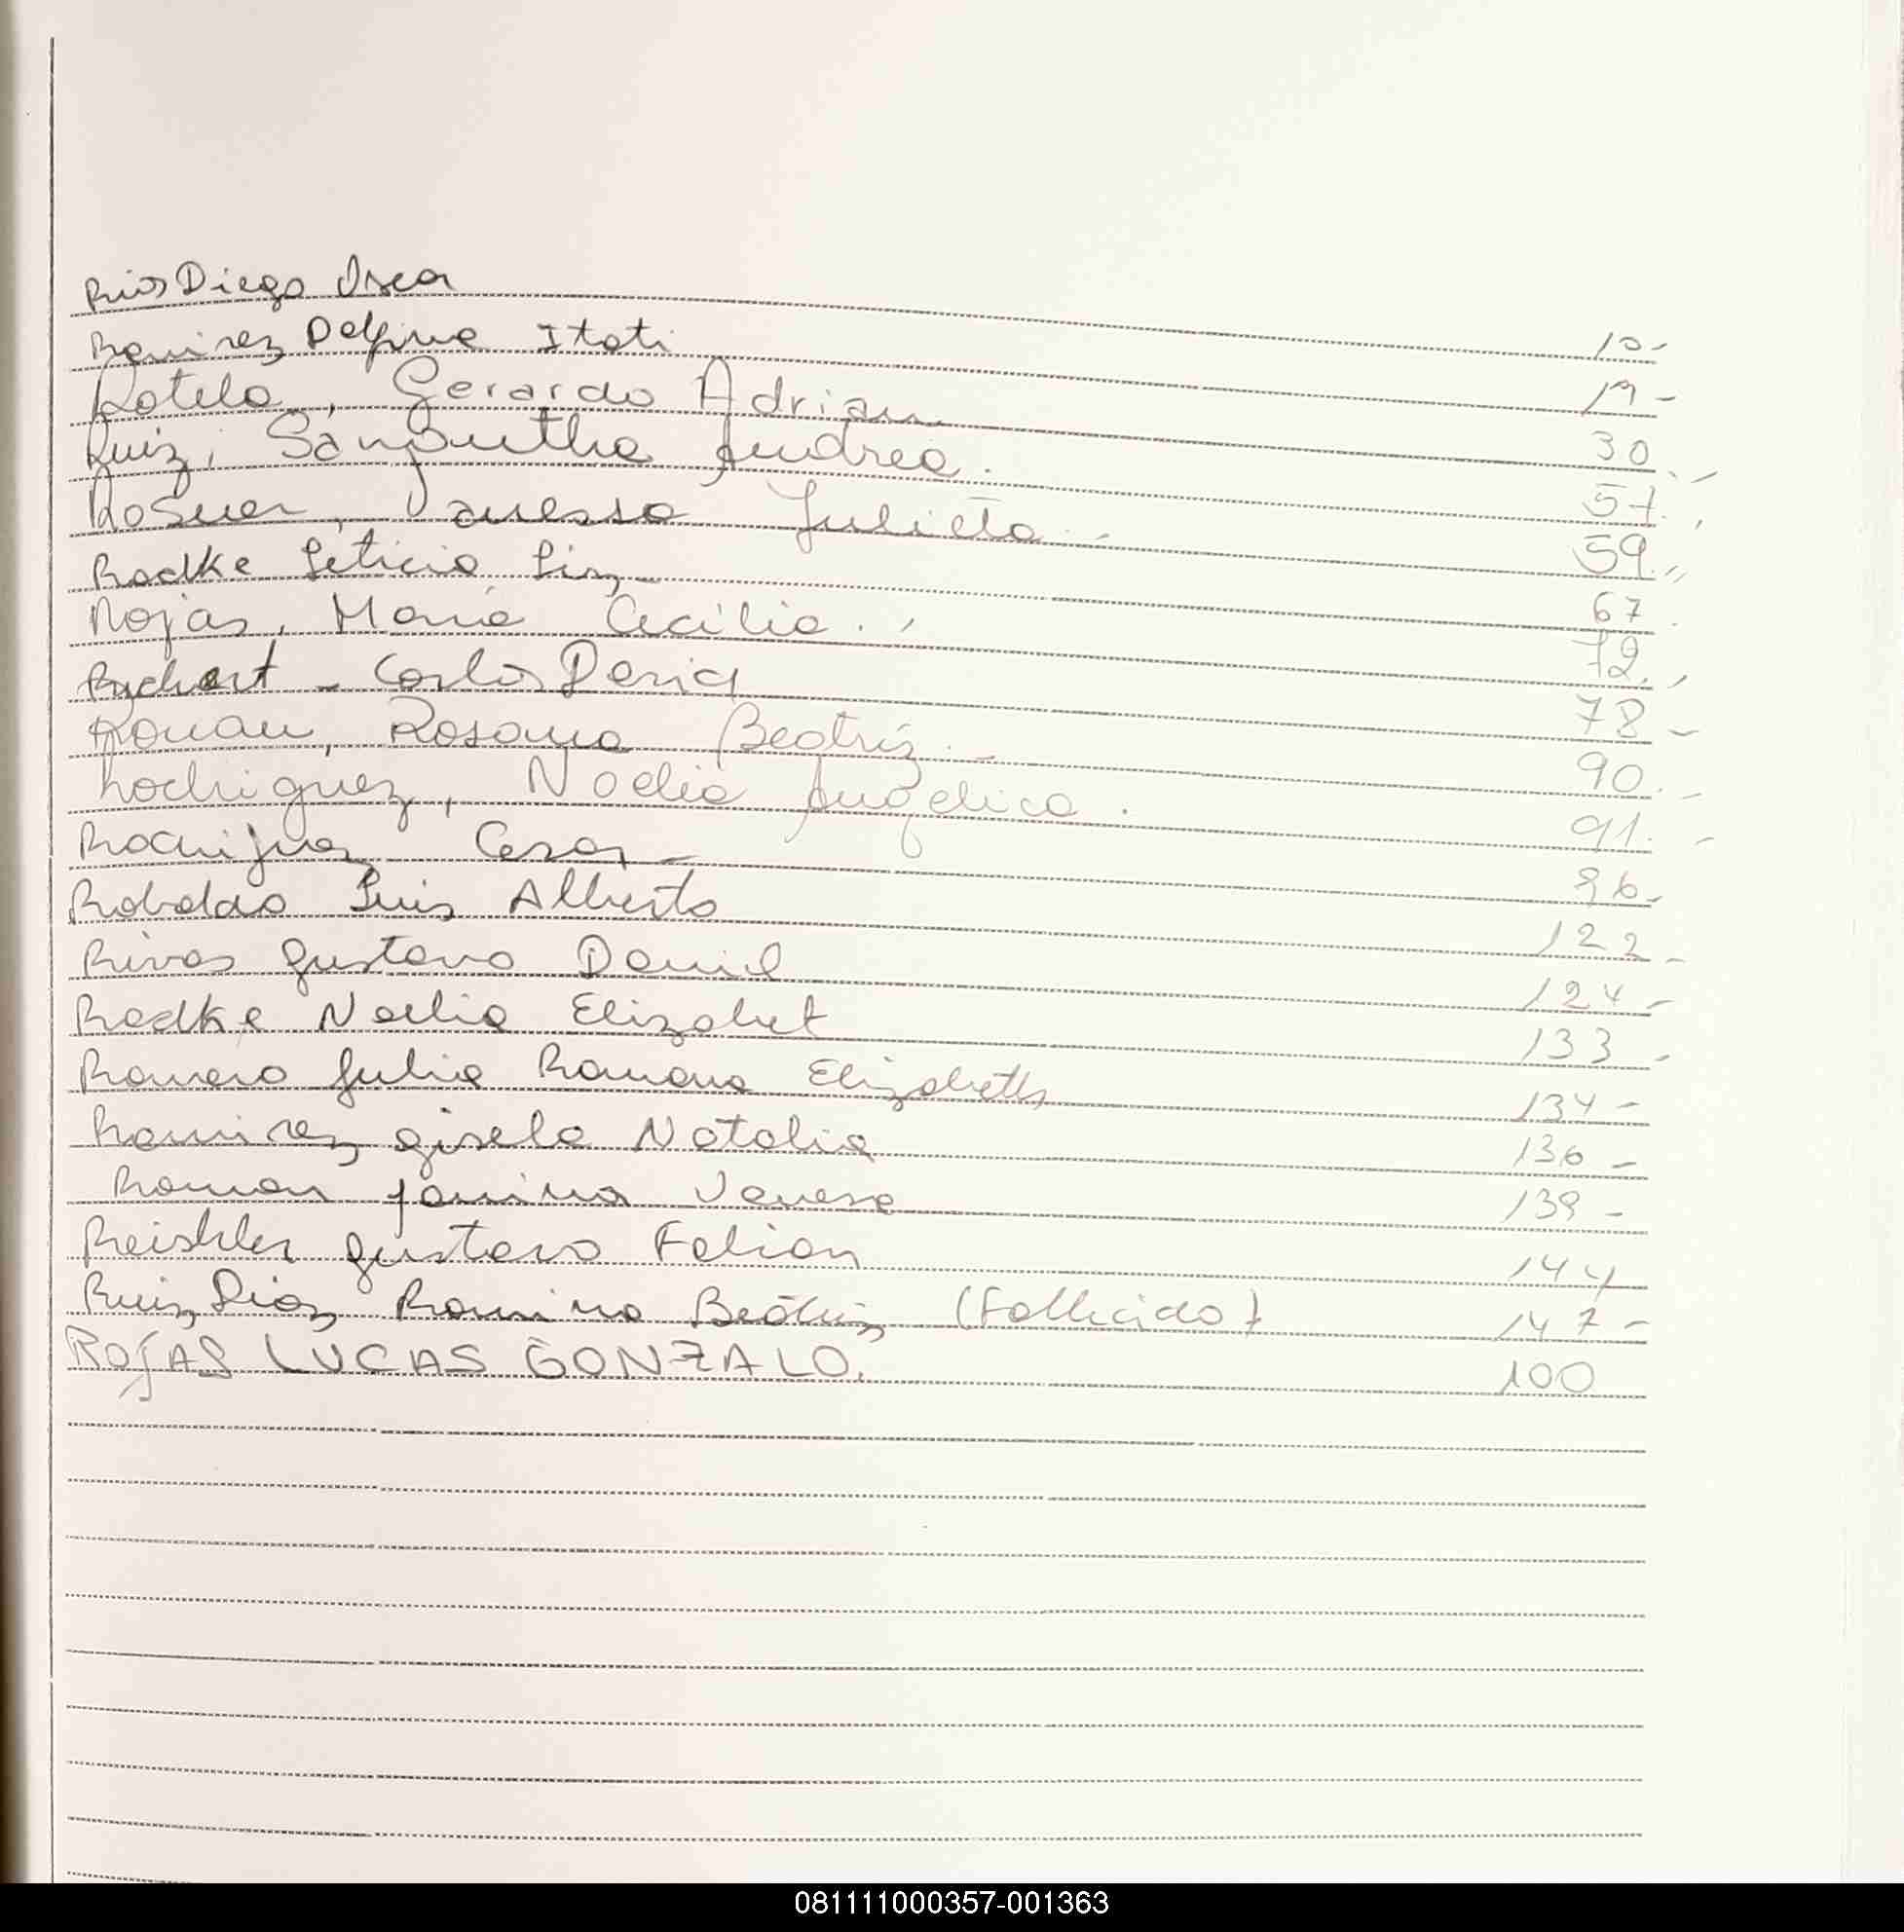 Rios Diego Oscar 10-
Ramirez Delfina Itati 19-
Rotela, Gerardo Adrian 30.-
Ruiz, Samantha Andrea. 57.-
Rosner, Vanessa Julieta.- 59.-
Radke Leticia Liz- 67
Rojas, María Cecilia.- 72.-
Rychert - Carlos Darío 78-
Roman, Rosana Beatriz.- 90.-
Rodriguez, Noelia Angelica. 91.-
Rodriguez Cesar- 96-
Robaldo Luis Alberto 122-
Rivas Gustavo Daniel 124-
Radke Noelia Elizabet 133-
Romero Julia Romana Elizabeth 134-
Ramirez Gisela Natalia 136-
Roman Janina Vanesa 139-
Gustavo Fabian 144
Ruiz Diaz Romina Beatriz (Fallecido) 147-
ROJAS LUCAS GONZALO. 100
081111000357-001363